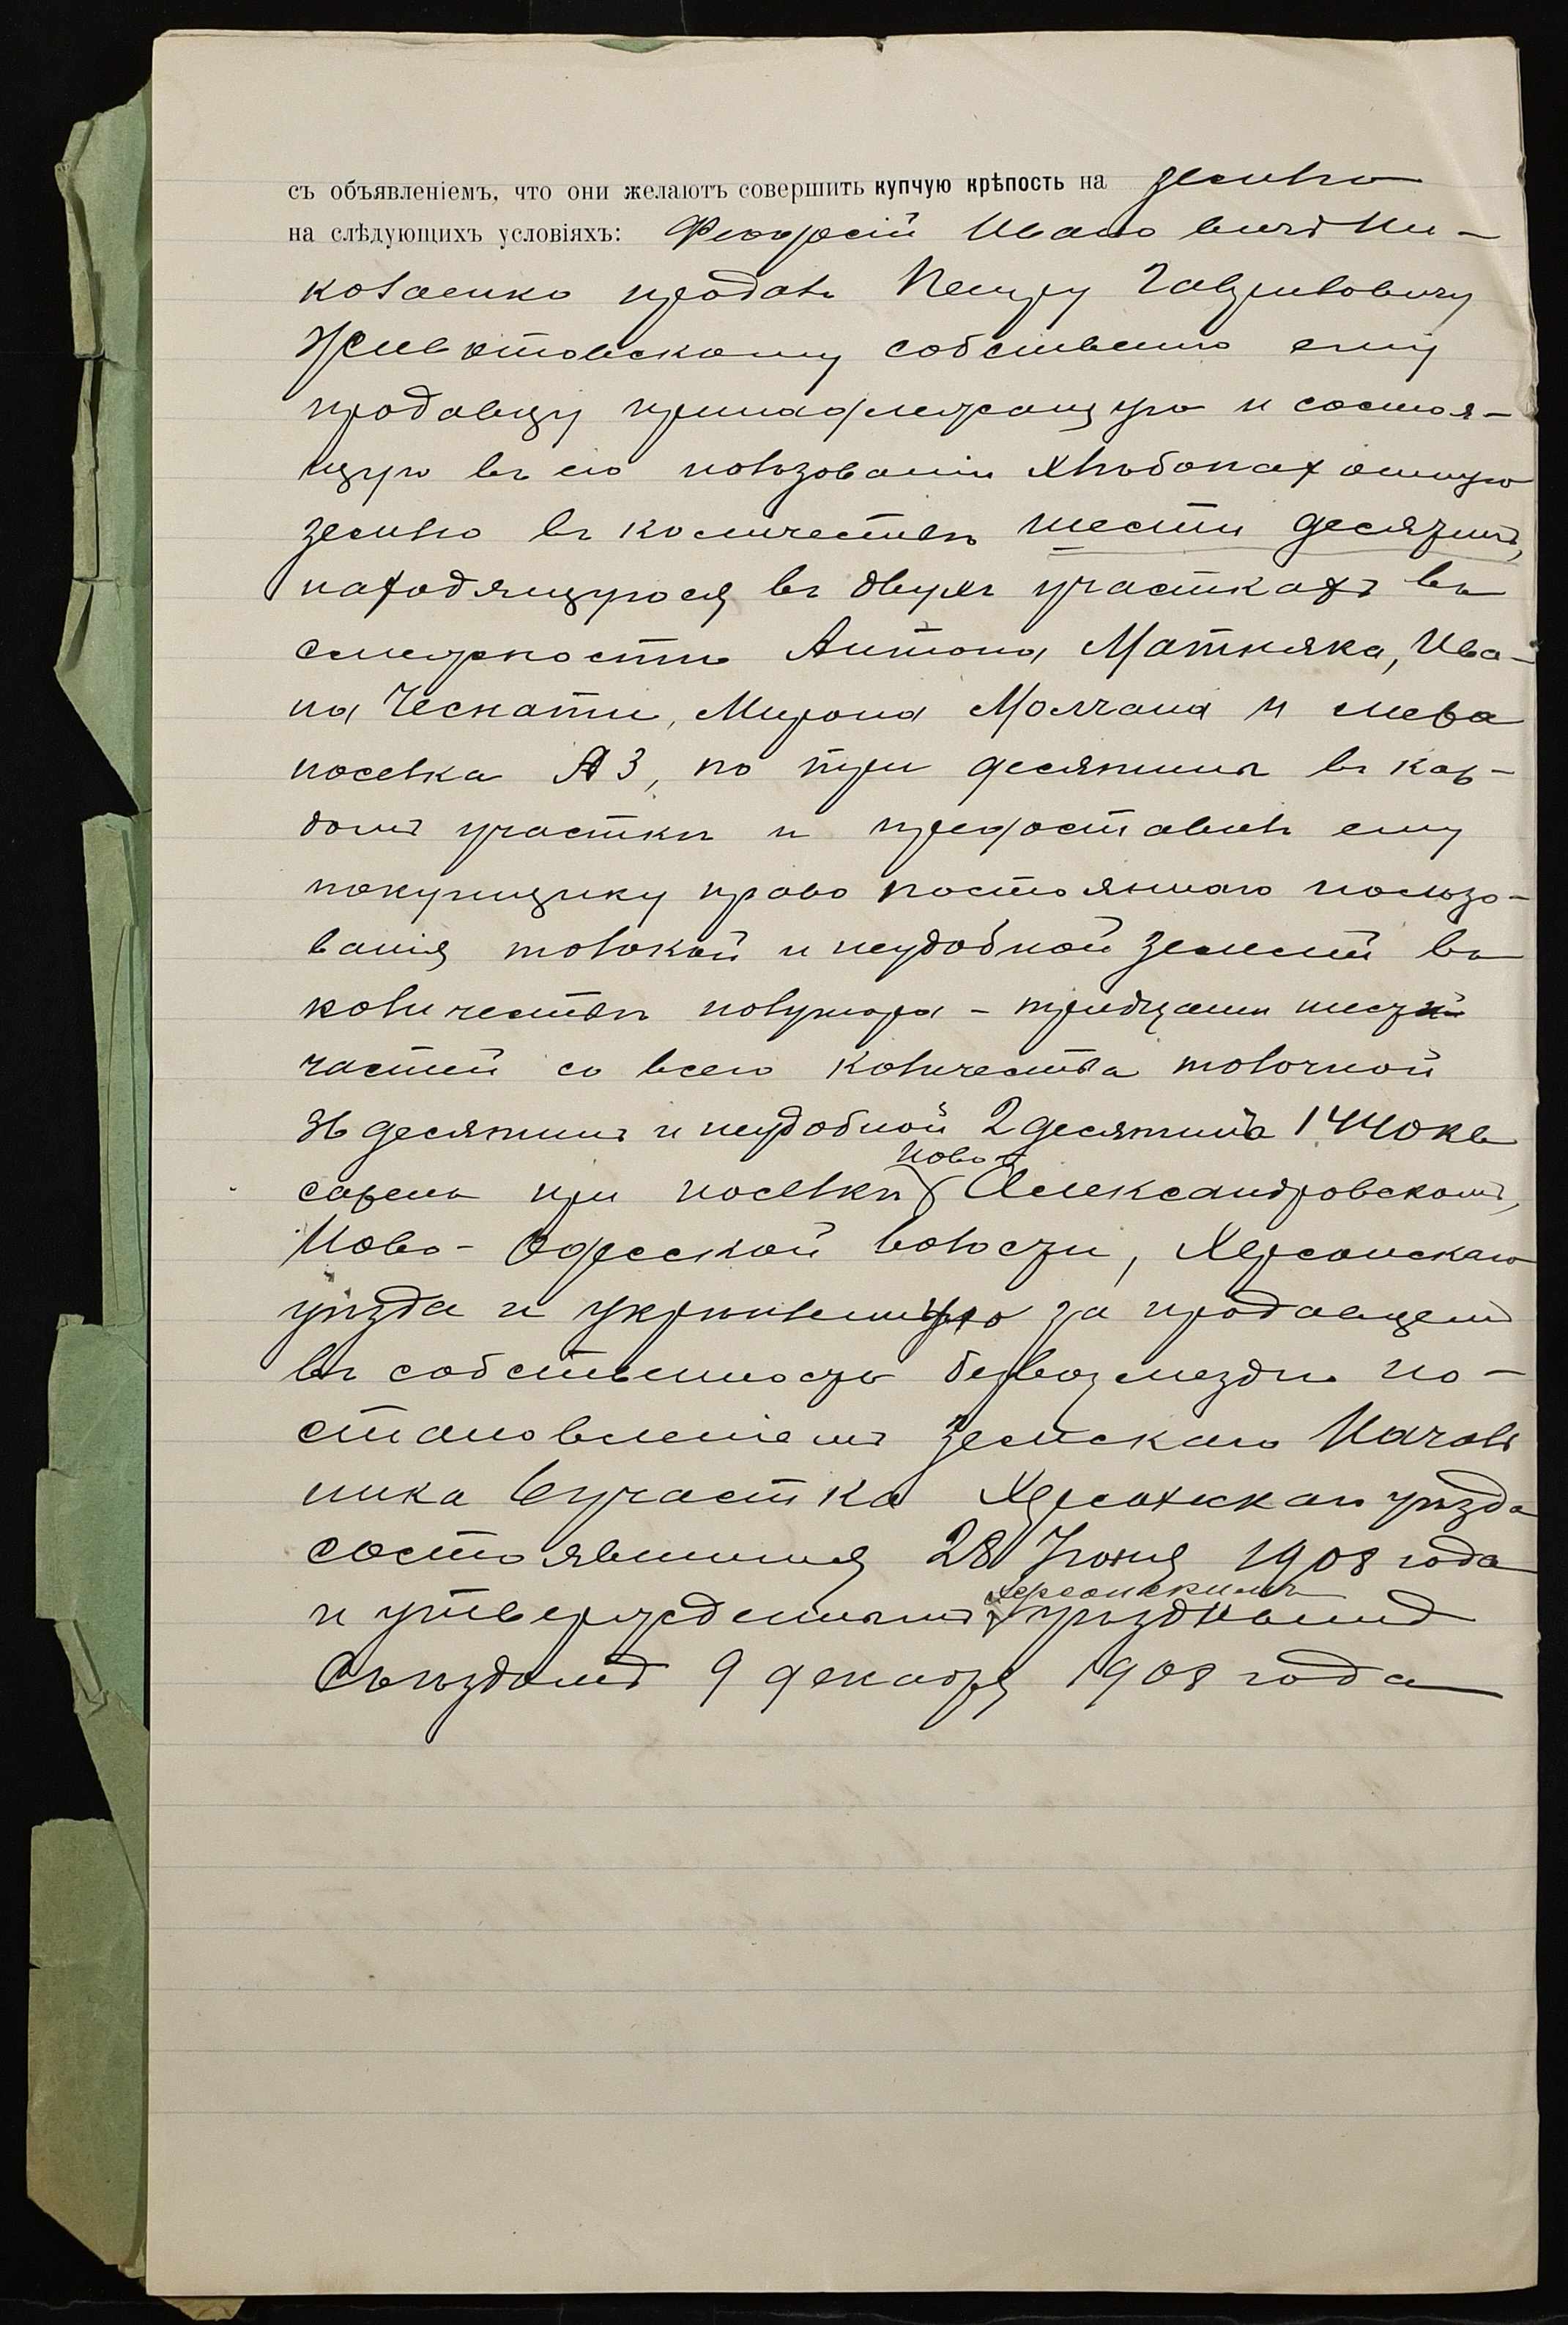 съ объявленіемъ, что они желаютъ совершить купчую крѣпость на землю
на слѣдующихъ условіяхъ: Феодосій Ивановичъ Ни-
колаенко продалъ Петру Гавриловичу
Животовскому собственно ему
продавцу принадлежащую и состоя-
щую въ его пользованіи хлѣбопахотную
землю въ количествѣ шести десятинъ,
находящуюся въ двухъ участкахъ въ
смежности Антона Матняка, Ива-
на Чеснати, Мирона Молчана и
поселка А 3, по три десятины въ каж-
домъ участкѣ и предоставилъ ему
покупщику право постояннаго пользо-
ванія толокой и неудобной землей въ
количествѣ полутора - тридцати шести
частей со всего количества толочной
36 десятинъ и неудобной 2 десятины 1440 кв
сажень при поселкѣ Ново- Александровскомъ,
Ново-Одесской волости, Херсонскаго
уѣзда и укрѣпленную за продавцемъ
въ собственность безвозмездно по-
становленіемъ Земскаго Началь
ника 6 участка Херсонскаго уѣзда
состоявшимся 28 Іюня 1908 года
и утвержденнымъ Херсонскимъ уѣзднымъ
Съѣздомъ 9 декабря 1908 года